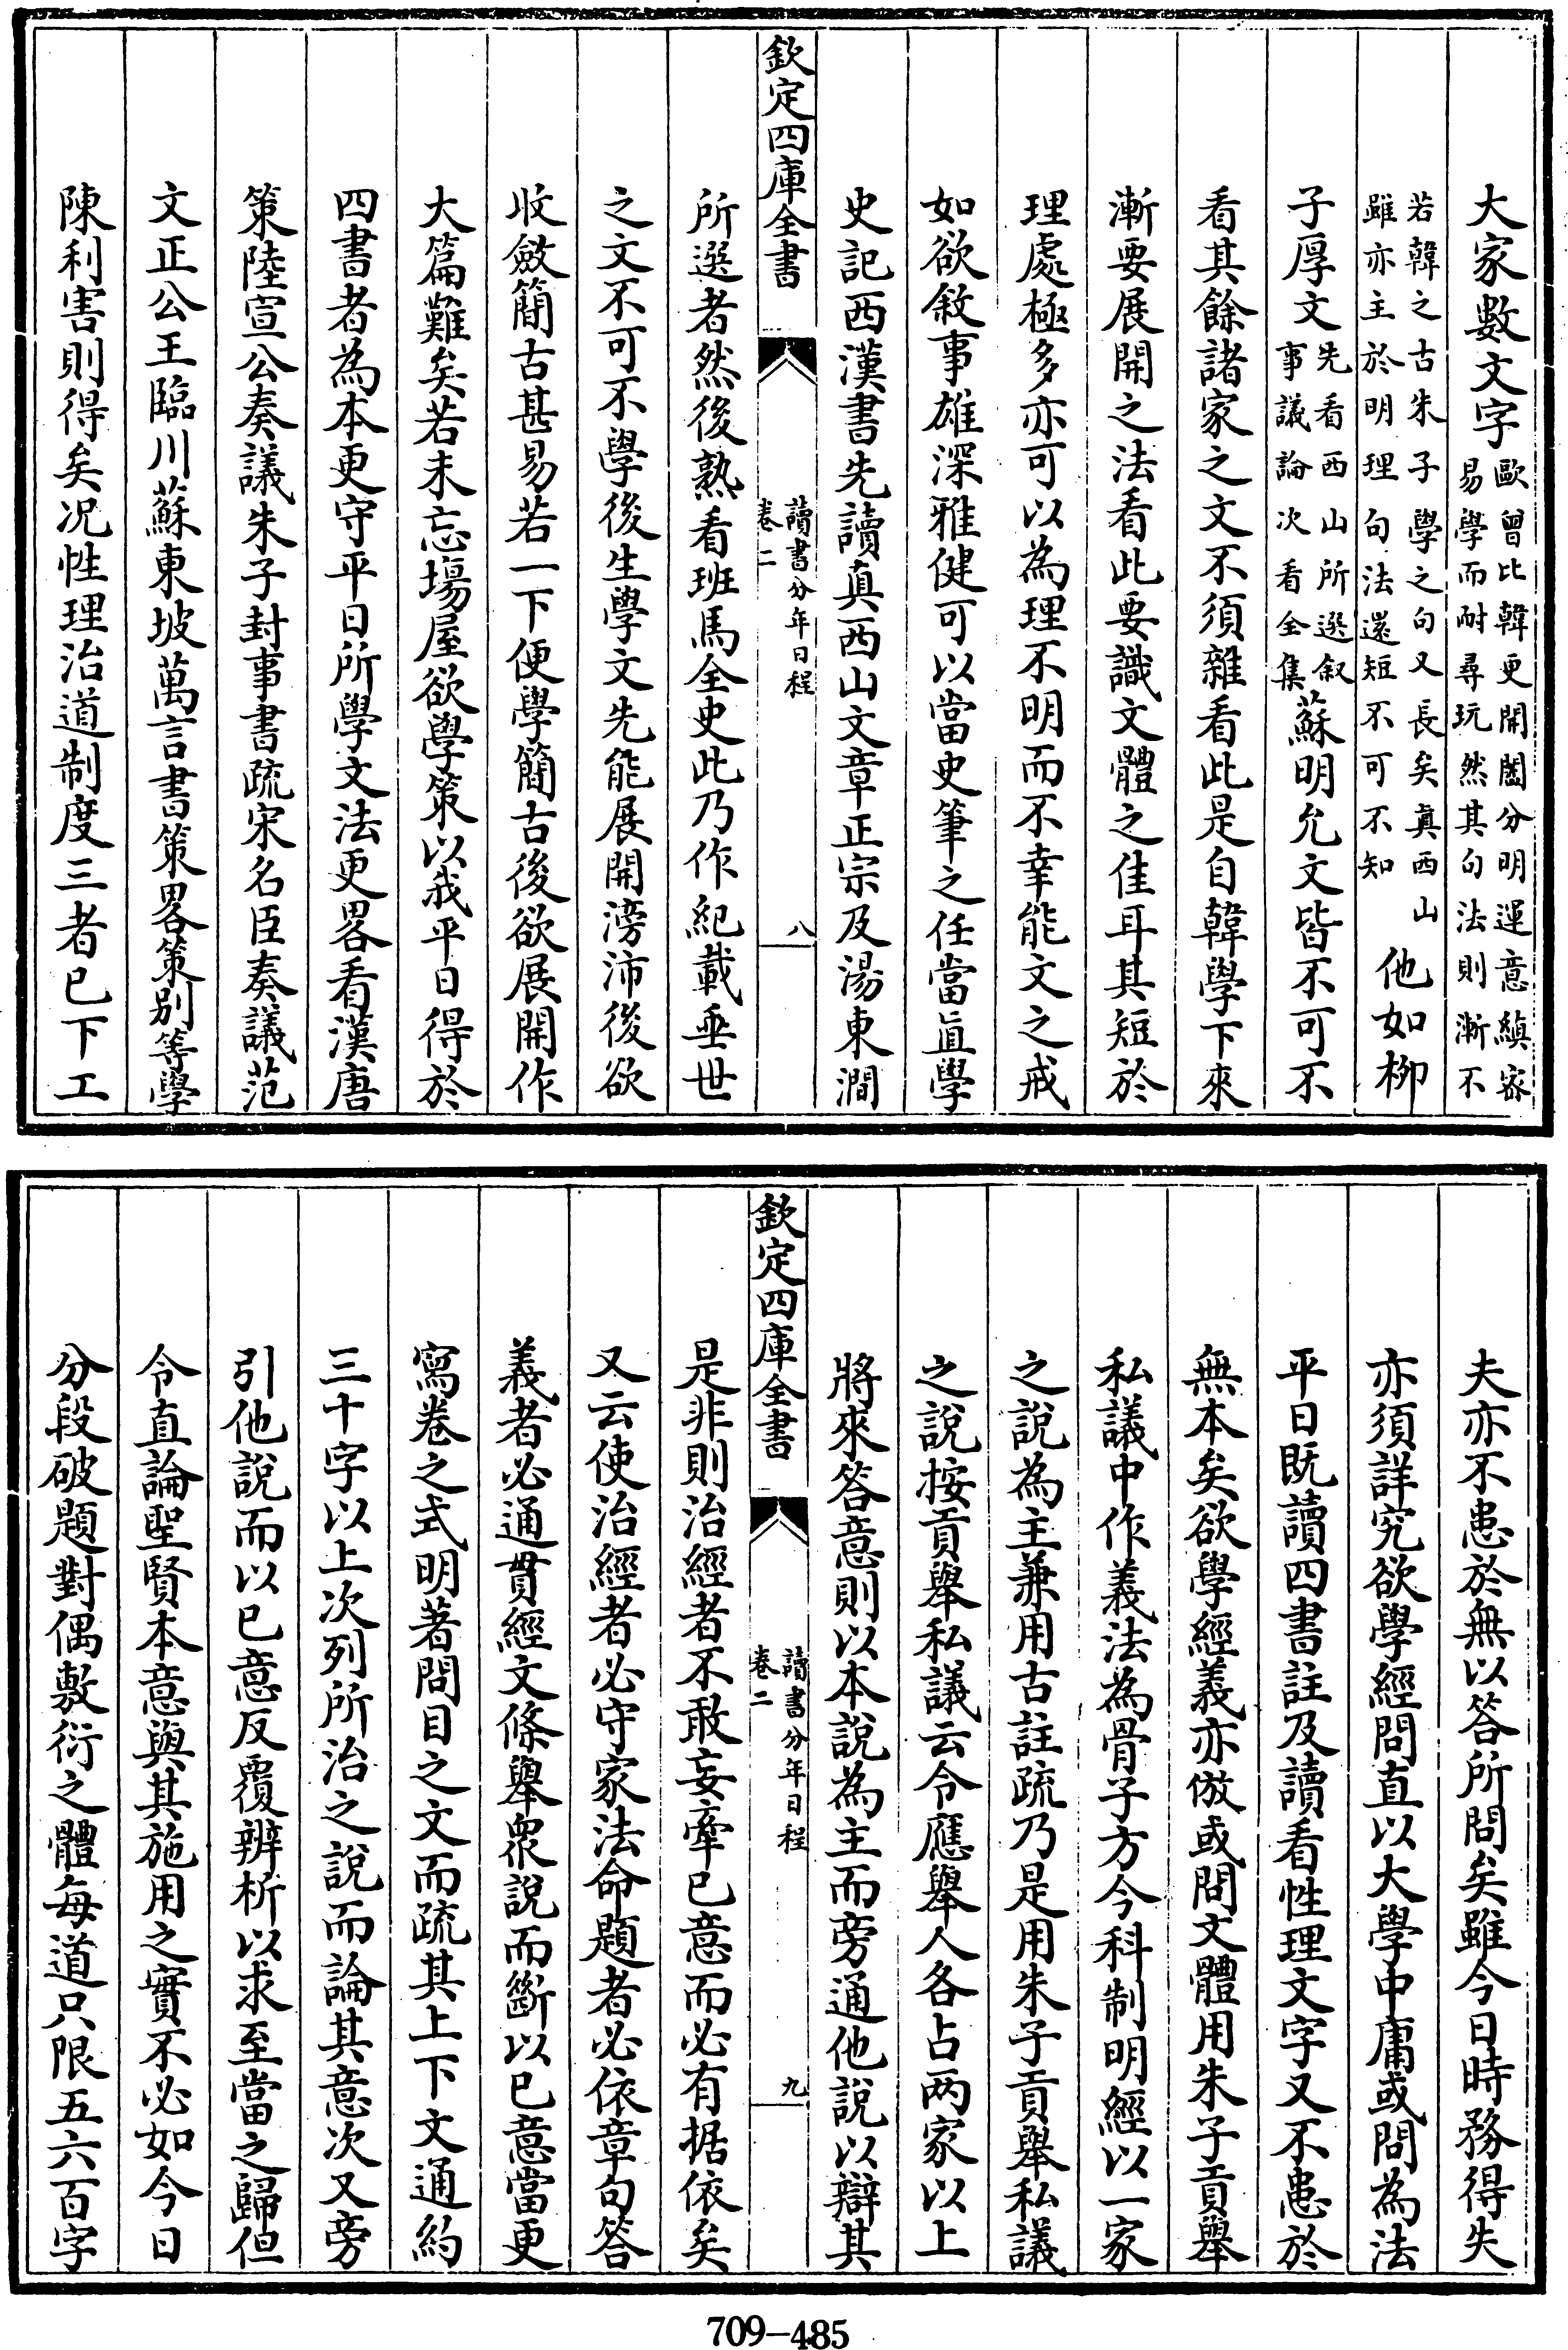 大家數文字歐曾比韓更開闔分明運意縝密易學而耐尋玩然其句法則漸不
若韓之古朱子學之句又長矣真西山雖亦主於明理句法還短不可不知他如柳
子厚文先看西山所選叙事議論次看全集蘇明允文皆不可不
看其餘諸家之文不須雜看此是自韓學下來
漸要展開之法看此要識文體之佳耳其短於
理處極多亦可以為理不明而不幸能文之戒
如欲敘事雄深雅健可以當史筆之任當直學
史記西漢書先讀真西山文章正宗及湯東澗
欽定四庫全書
讀書分年日程
卷二
八
所選者然後熟看班馬全史此乃作紀載垂世
之文不可不學後生學文先能展開滂沛後欲
收斂簡古甚易若一下便學簡古後欲展開作
大篇難矣若未忘場屋欲學策以我平日得於
四書者為本更守平日所學文法更畧看漢唐
策陸宣公奏議朱子封事書疏宋名臣奏議范
文正公王臨川蘇東坡萬言書策畧策別等學
陳利害則得矣況性理治道制度三者已下工
夫亦不患於無以答所問矣雖今日時務得失
亦須詳究欲學經問直以大學中庸或問為法
平日既讀四書註及讀看性理文字又不患於
無本矣欲學經義亦倣或問文體用朱子貢舉
私議中作義法為骨子方今科制明經以一家
之說為主兼用古註疏乃是用朱子貢舉私議
之說按貢舉私議云令應舉人各占兩家以上
將來答意則以本說為主而旁通他說以辯其
欽定四庫全書
讀書分年日程
卷二
九
是非則治經者不敢妄牽已意而必有据依矣
又云使治經者必守家法命題者必依章句答
義者必通貫經文條舉衆說而斷以已意當更
寫卷之式明著問目之文而疏其上下文通約
三十字以上次列所治之說而論其意次又旁
引他說而以已意反覆辨析以求至當之歸但
令直論聖賢本意與其施用之實不必如今日
分段破題對偶敷衍之體每道只限五六百字
709-485